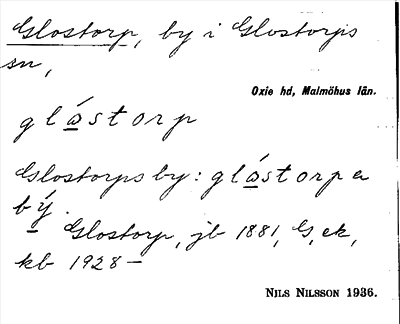 Glostorp, by i Glostorps
sn,
Oxie hd, Malmöhus län.
glåstorp
Glostorps by: glåstorpa
bý.
Glostorp, jb 1881, G, ek,
kb 1928 –
NILS NILSSON 1936.